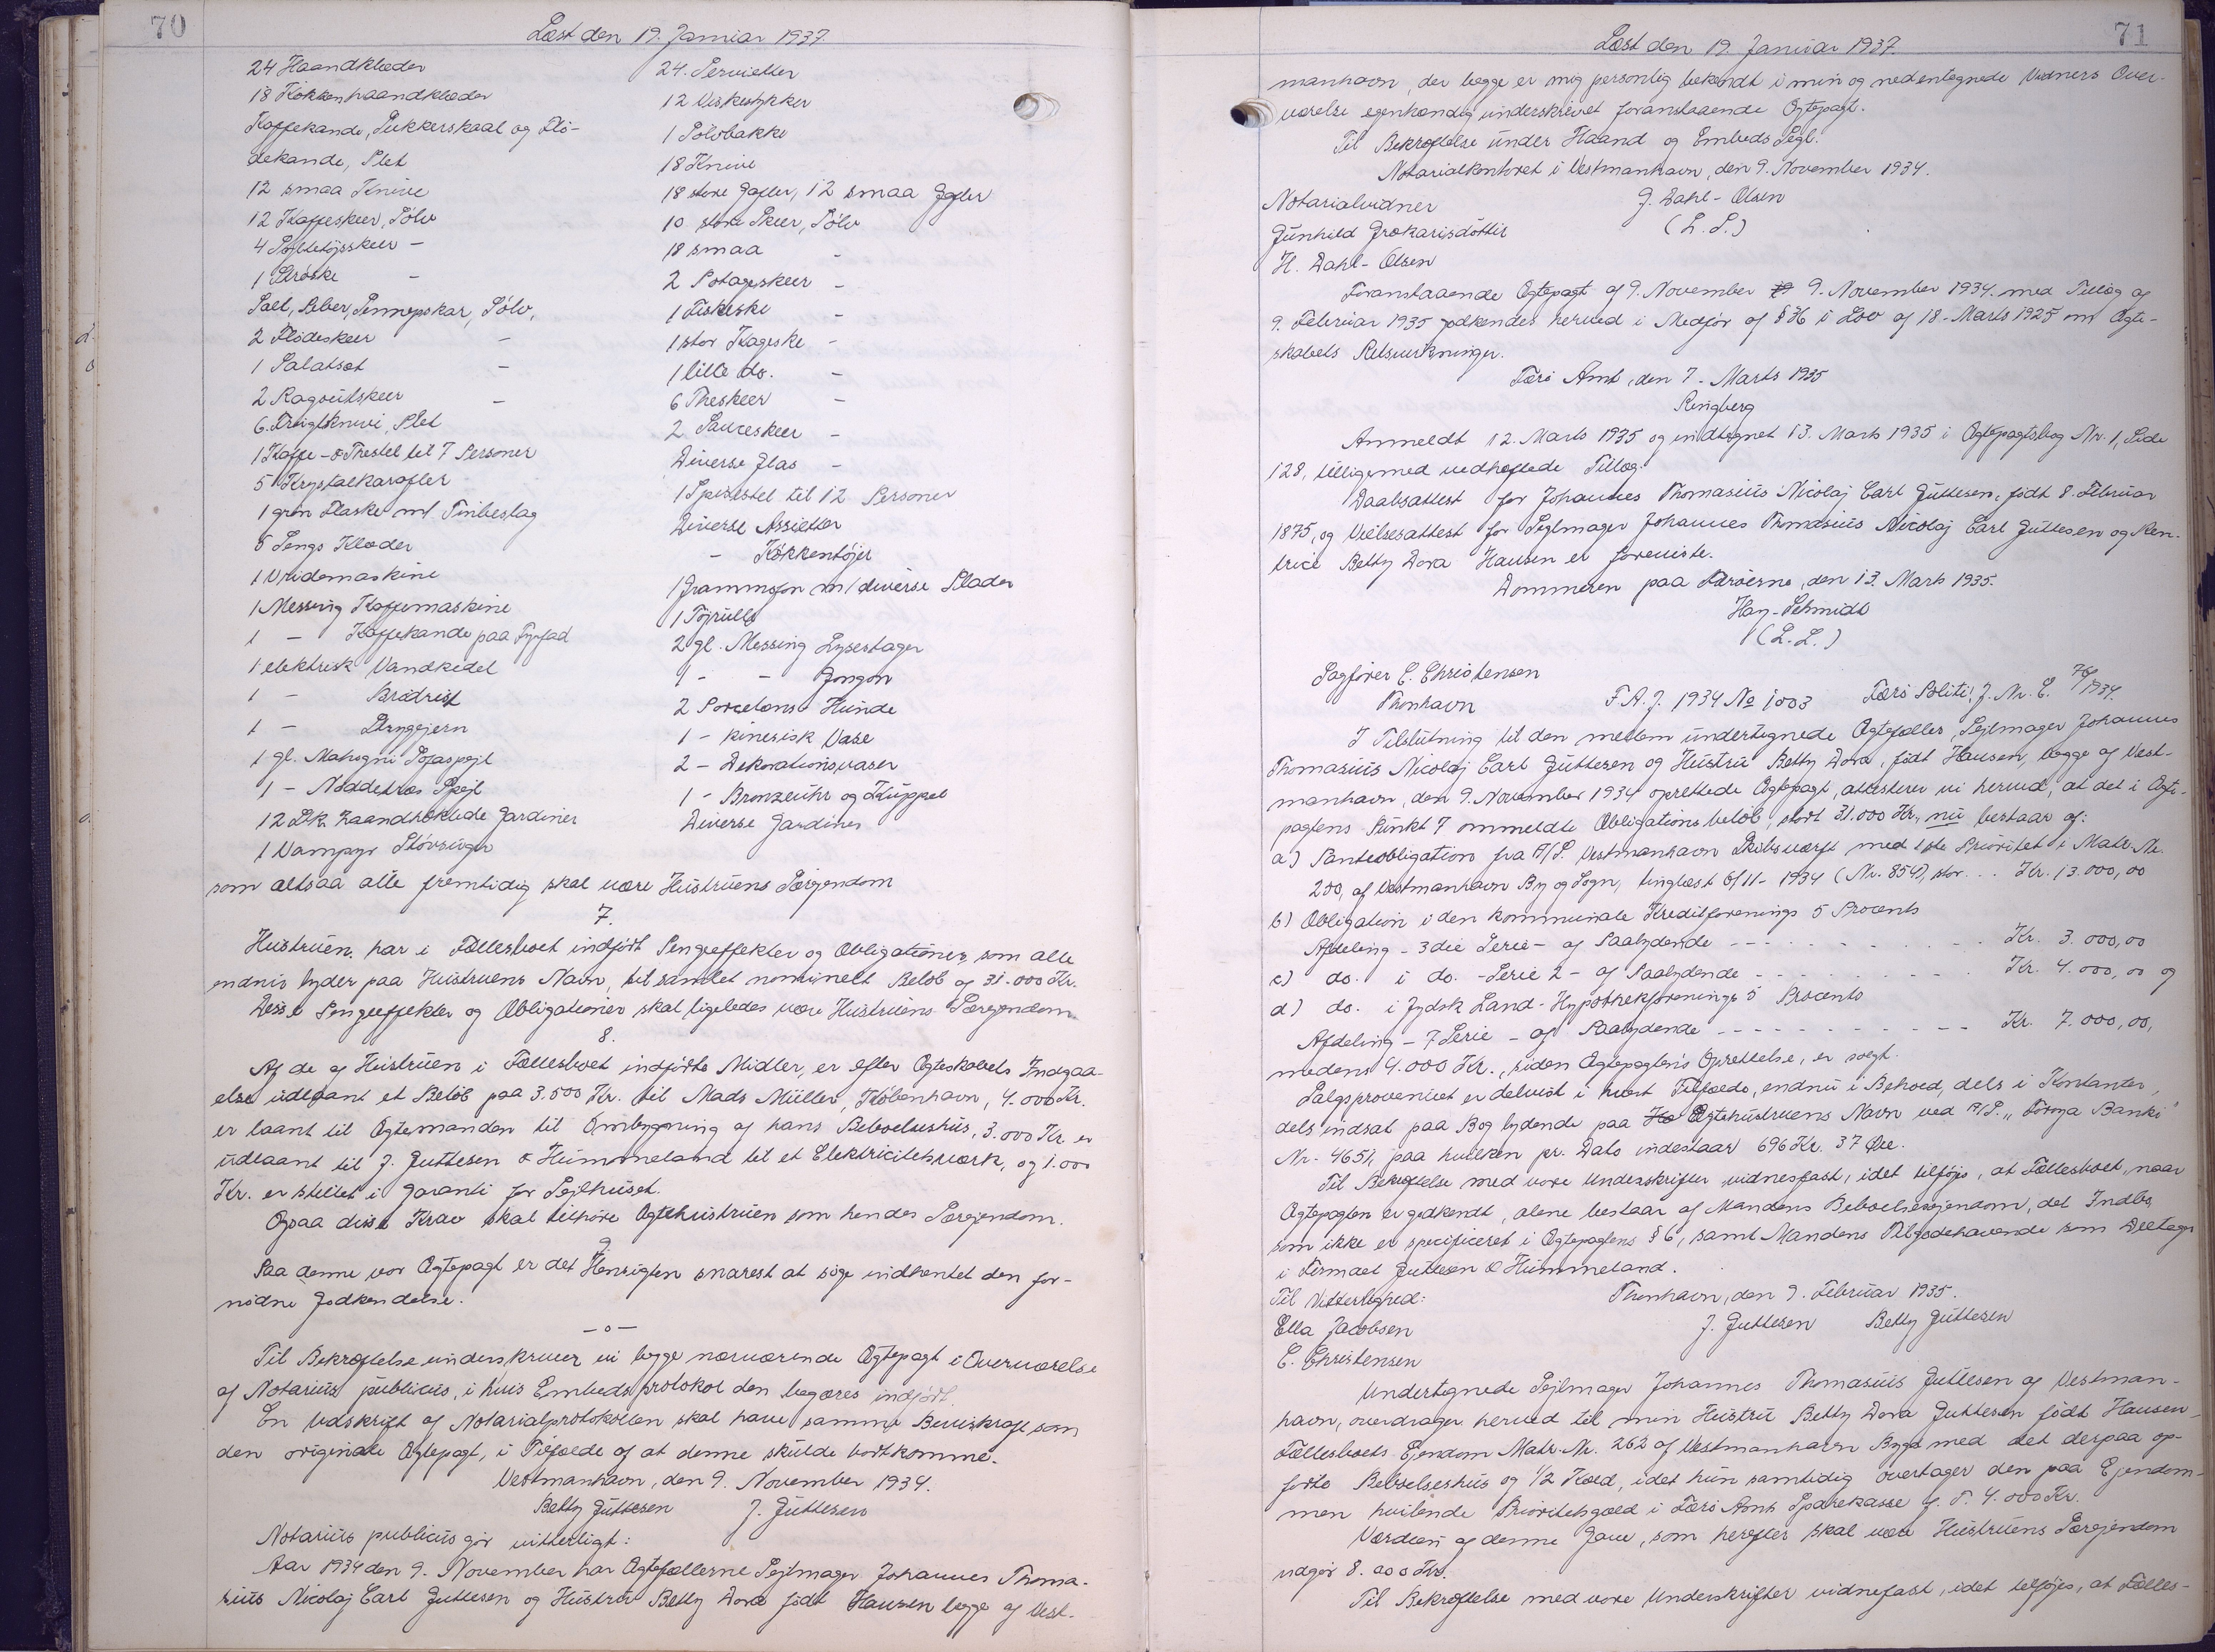 70
Læst den 19. Januar 1937.
24 Haandklæder
18 Kökkenhaandklæder
Kaffekande, Sukkerskaal og Flö-
dekande, Plet
12 smaa Knive
12 Kaffeskeer, Sölv
4 Syltetöjsskeer -
1 Ströske -
Salt, Peber, Sennepskar, Sölv,
2 Flödeskeer -
1 Salatsæt -
2 Ragoutskeer -
6 Frugtknive, Plet
1 Kaffe- & Thestel til 7 Personer
5 Krystalkarafler
1 grøn Flaske m/ Tinbeslag
5 Sengs Klæder
1 Vridemaskine
1 Messing Kaffemaskine
1 - Kaffekande paa Fyrfad
1 elektrisk Vandkedel
1 - Brödrist
1 - Strygejern
1 gl. Mahogni Sofaspejl
1 - Nöddetræs Spejl
12 Stk. haandhæklede Gardiner
1 Vampyr Stövsuger
24 Servietter
12 Viskestykker
1 Sölvbakke
18 Knive
18 store Gafler, 12 smaa Gafler
10 store Skeer, Sölv
18 smaa -
2 Potageskeer -
1 Fiskeske -
1 stor Kageske -
1 lille do. -
6 Theskeer -
2 Sauceskeer -
Diverse Glas -
1 Spisestel til 12 Personer
Diverse Assietter
- Kökkentöjer
1 Grammofon m/ diverse Plader
1 Töjrulle
2 gl. Messing Lysestager
1 - - Gongon
2 Porcelæns Hunde
1 - kinesisk Vase
2 - Dekorationsvaser
1 - Bronzeuhr og Kuppel
Diverse Gardiner
som altsaa alle fremtidig skal være Hustruens Særejendom
7.
Hustruen har i Fællesboet indfört Pengeeffekter og Obligationer, som alle
endnu lyder paa Hustruens Navn, til samlet nominelt Belöb af 31.000 Kr.
Disse Pengeeffekter og Obligationer skal ligeledes være Hustruens Særejendom
8.
Af de af Hustruen i Fællesboet indförte Midler, er efter Ægteskabets Indgaa-
else udlaant et Belöb paa 3.500 Kr. til Mads Müller, Köbenhavn, 4.000 Kr.
er laant til Ægtemanden til Ombygning af hans Beboelseshus, 3.000 Kr. er
udlaant til J. Guttesen & Hummeland til et Elektricitetsværk, og 1.000
Kr. er stillet i Garanti for Sejlhuset.
Ogsaa disse Krav skal tilhöre Ægtehustruen som hendes Særejendom.
9.
Paa denne vor Ægtepagt er det Hensigten snarest at söge indhentet den for-
nödne Godkendelse.
-o-
Til Bekræftelse underskriver vi begge nærværende Ægtepagt i Overværelse
af Notarius publicus, i hvis Embedsprotokol den begæres indfört.
En Udskrift af Notarialprotokollen skal have samme Beviskraft som
den originale Ægtepagt, i Tilfælde af at denne skulde bortkomme.
Vestmanhavn, den 9. November 1934.
Betty Guttesen J. Guttesen
Notarius publicus gör vitterligt:
Aar 1934 den 9. November har Ægtefællerne Sejlmager Johannes Thoma-
sius Nicolaj Carl Guttesen og Hustru Betty Dora födt Hansen begge af Vest-
71
Læst den 19. Januar 1937.
manhavn, der begge er mig personlig bekendt i min og nedentegnede Vidners Over-
værelse egenhændig underskrevet foranstaaende Ægtepagt.
Til Bekræftelse under Haand og Embeds Segl.
Notarialkontoret i Vestmanhavn, den 9. November 1934.
Notarialvidner G. Dahl-Olsen
Gunhild Zrokarisdóttir (L. S.)
H. Dahl-Olsen
Foranstaaende Ægtepagt af 9. November 9. November 1934 med Tillæg af
9. Februar 1935 godkendes herved i Medför af § 36 i Lov af 18. Marts 1925 om Ægte-
skabets Retsvirkninger.
Færö Amt, den 7. Marts 1935
Ringberg
Anmeldt 12. Marts 1935 og indtegnet 13. Marts 1935 i Ægtepagtsbog Nr. 1, Side
128, tilligemed vedhæftede Tillæg.
Daabsattest for Johannes Thomasius Nicolaj Carl Guttesen, födt 8. Februar
1875, og Vielsesattest for Sejlmager Johannes Thomasius Nicolaj Carl Guttesen og Ren-
trice Betty Dora Hansen er foreviste.
Dommeren paa Færöerne, den 13. Marts 1935.
Hay-Schmidt
(L. S.)
Sagförer C. Christensen
Thorshavn F.A.J. 1934 No 1003 Færö Politi: J. Nr. E. 76/1934.
I Tilslutning til den mellem undertegnede Ægtefæller, Sejlmager Johannes
Thomasius Nicolaj Carl Guttesen og Hustru Betty Dora, födt Hansen, begge af Vest-
manhavn, den 9. November 1934 oprettede Ægtepagt, attesterer vi herved, at det i Ægte-
pagtens Punkt 7 ommeldte Obligationsbelöb, stort 31.000 Kr., nu bestaar af:
a) Panteobligation fra A/S. Vestmanhavn Skibsværft med 1ste Prioritet i Matr. Nr.
200, af Vestmanhavn By og Sogn, tinglæst 6/11-1934 (Nr. 854), stor... Kr. 13.000,00
b) Obligation i den kommunale Kreditforenings 5 Procents
Afdeling - 3die Serie - af Paalydende - - - Kr. 3.000,00
c) do. i do. - Serie 2 - af Paalydende - - - Kr. 4.000,00 og
d) do. i Jydsk Land-Hypothekforenings 5 Procents
Afdeling - 7 Serie - af Paalydende - - - Kr. 7.000,00,
medens 4.000 Kr., siden Ægtepagtens Oprettelse, er solgt.
Salgsprovenuet er delvist i hvert Tilfælde, endnu i Behold, dels i Kontanter,
dels indsat paa Bog lydende paa Ægtehustruens Navn ved A/S. "Föroya Banki"
Nr. 4651, paa hvilken pr. Dato indestaar 696 Kr. 37 Øre.
Til Bekræftelse med vore Underskrifter vidnesfast, idet tilföjes, at Fællesboet, naar
Ægtepagten er godkendt, alene bestaar af Mandens Beboelsesejendom, det Indbo,
som ikke er specificeret i Ægtepagtens § 6, samt Mandens Tilgodehavende som Deltager
i Firmaet Guttesen & Hummeland.
Til Vitterlighed: Thorshavn, den 9. Februar 1935.
Ella Jacobsen J. Guttesen Betty Guttesen
C. Christensen
Undertegnede Sejlmager Johannes Thomasius Guttesen af Vestman-
havn, overdrager herved til min Hustru Betty Dora Guttesen födt Hansen
Fællesboets Ejendom Matr. Nr. 262 af Vestmanhavn Bygd med det derpaa op-
förte Beboelseshus og 1/2 Kæld, idet hun samtidig overtager den paa Ejendom-
men hvilende Prioritetsgæld i Færö Amts Sparekasse p. T. 4.000 Kr.
Værdien af denne Gave, som herefter skal være Hustruens Særejendom
udgör 8.000 Kr.
Til Bekræftelse med vore Underskrifter vidnefast, idet tilföjes, at Fælles-